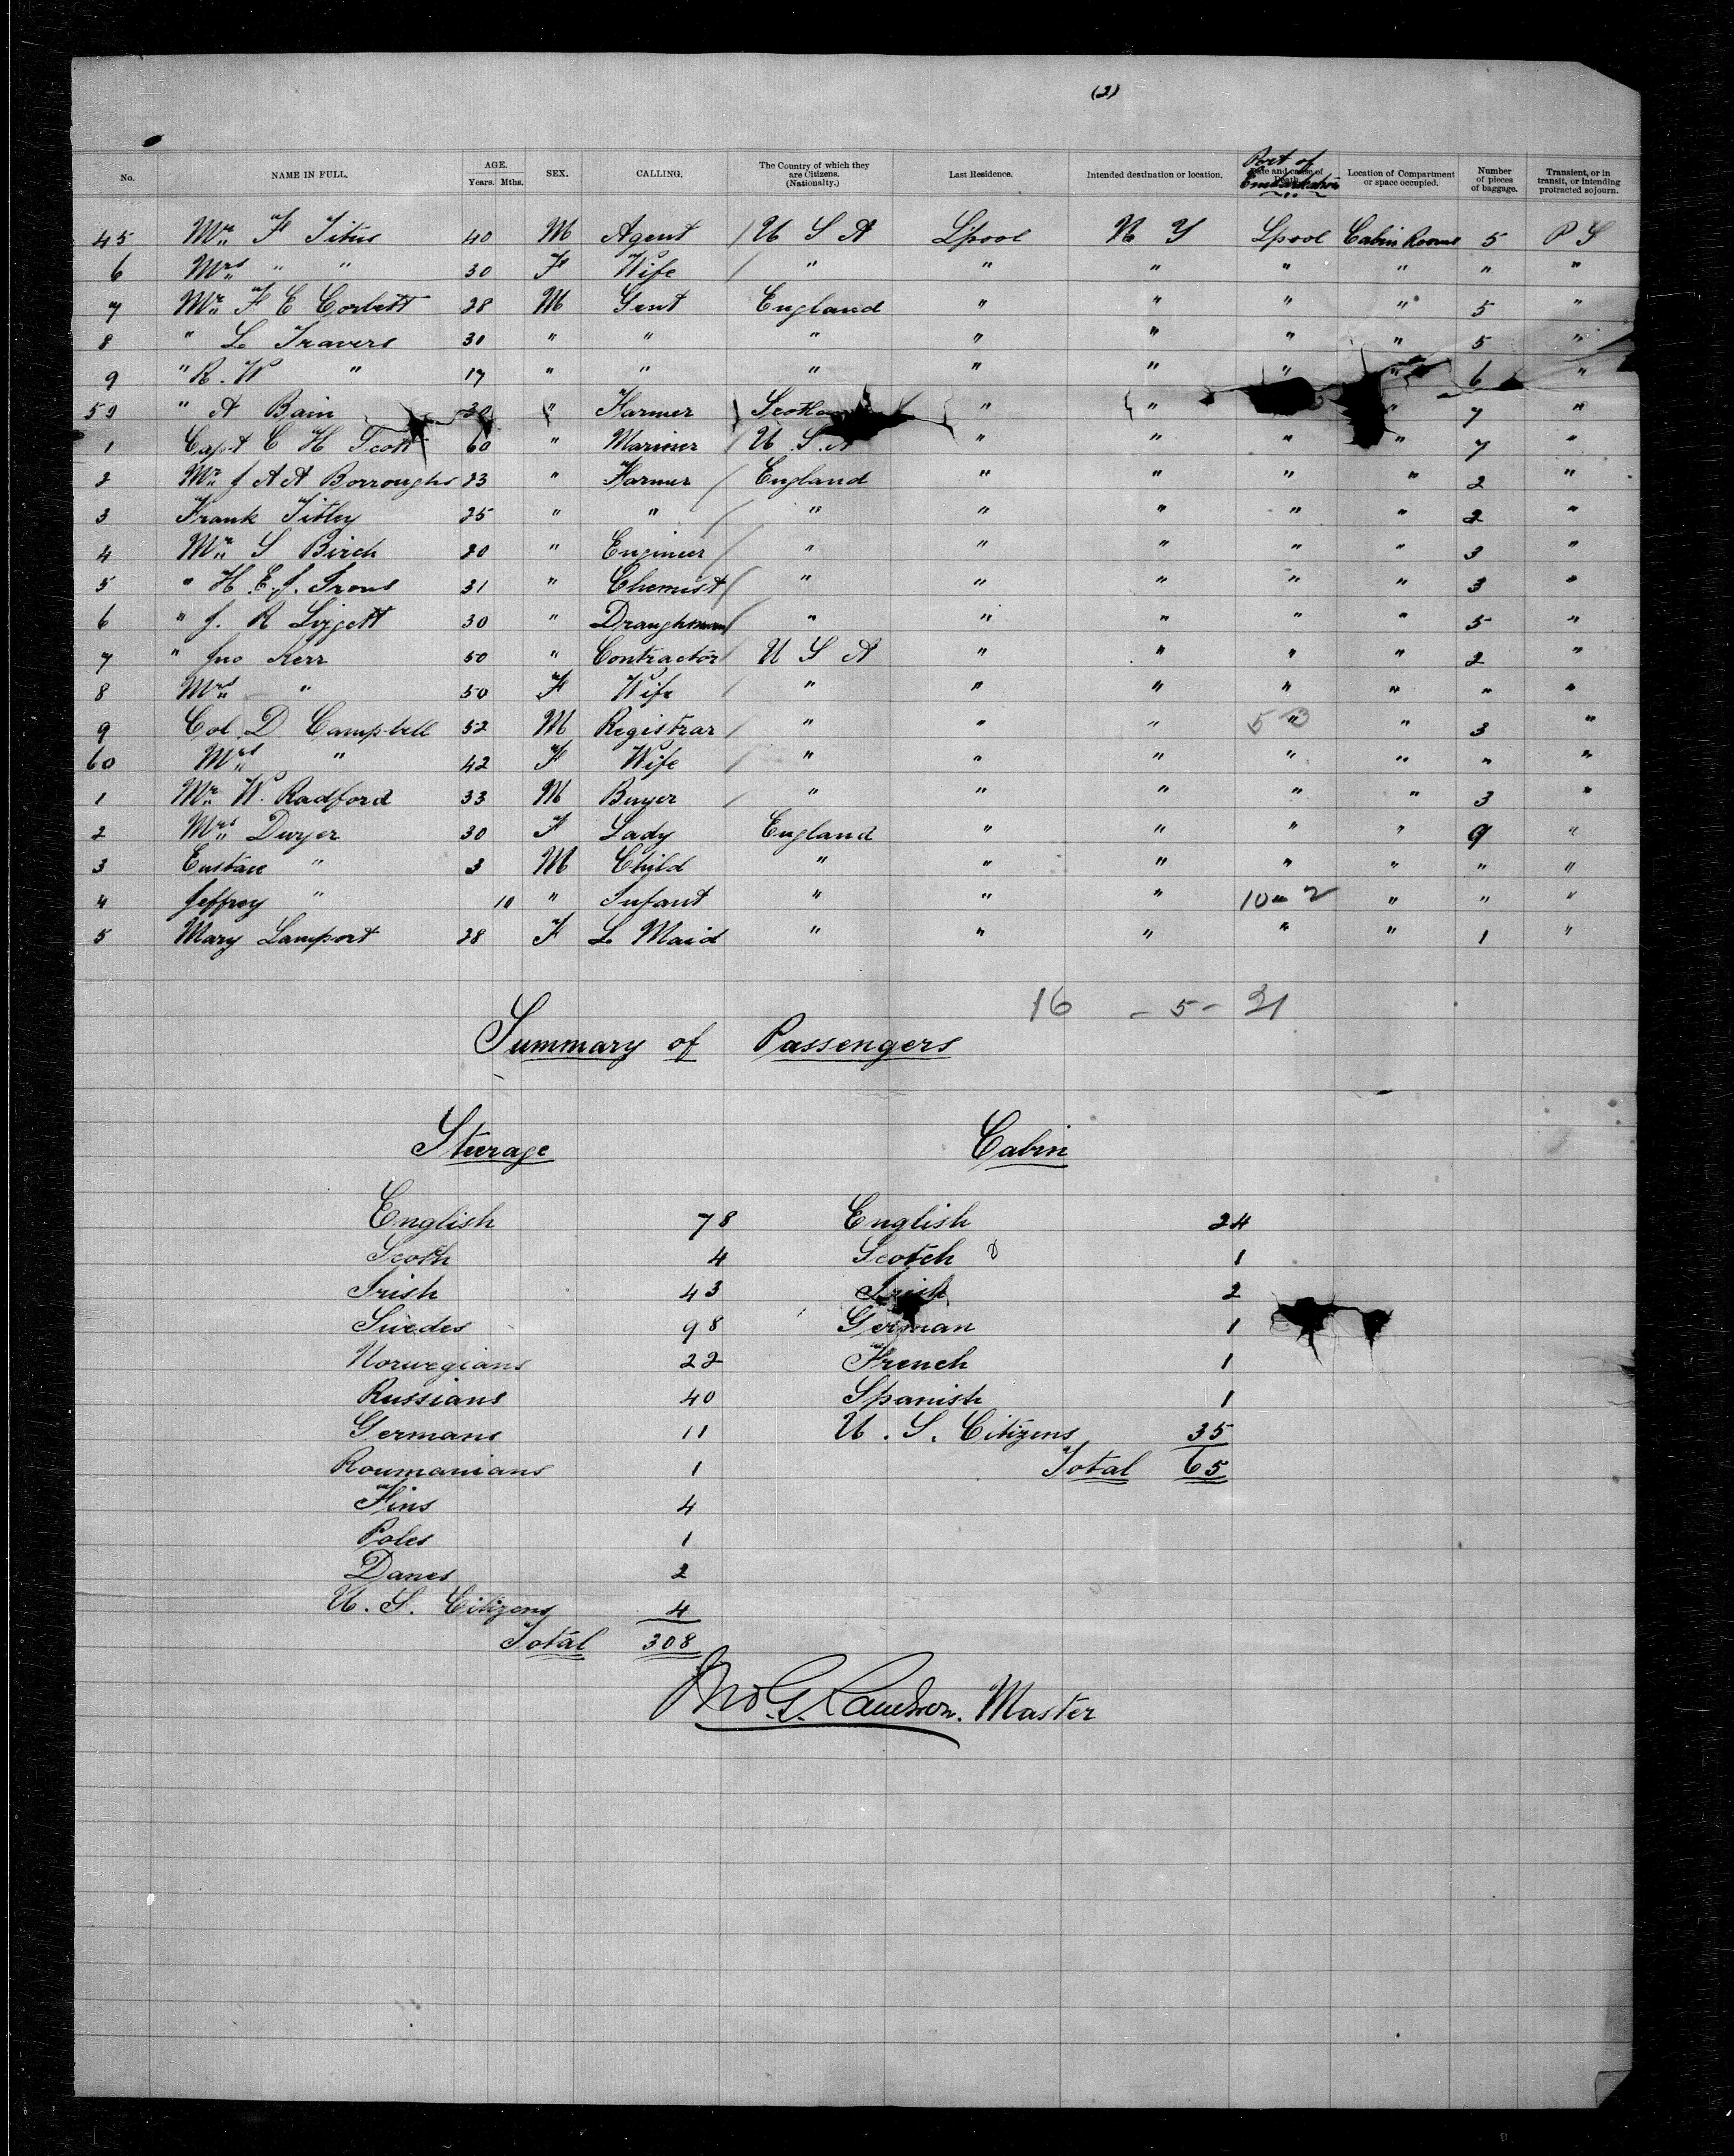 (2)
No. NAME IN FULL. AGE. Years. Mths. SEX. CALLING. The Country of which they are Citizens. (Nationality.) Last Residence. Intended destination or location. Port of Embarkation Location of Compartment or space occupied. Number of pieces of baggage. Transient, or in transit, or intending protracted sojourn.
45 Mr F Titus 40 M Agent / U S A L'pool N Y Lpool Cabin Rooms 5 P S
6 Mrs " " 30 F Wife / " " " " " " "
7 Mr F E Corbett 28 M Gent England " " " " 5 "
8 " L Travers 30 " " " " " " " 5 "
9 " R. W " 17 " " " " " " " 6 "
50 " A Bain 30 " Farmer " " " 7 "
1 Capt C H Scott 60 " Mariner / U S A " " " " 7 "
2 Mr J A A Borroughs 23 " Farmer / England " " " " 2 "
3 Frank Titley 25 " " / " " " " " 2 "
4 Mr S Birch 20 " Engineer / " " " " " 3 "
5 " H. E. J. Irons 31 " Chemist / " " " " " 3 "
6 " J. R Liggett 30 " Draughsman / " " " " " 5 "
7 " Jno Kerr 50 " Contractor / U S A " " " " 2 "
8 Mrs " 50 F Wife / " " " " " " "
9 Col. D. Campbell 52 M Registrar / " " " " " 3 "
60 Mrs " 42 F Wife / " " " " " " "
1 Mr W. Radford 33 M Buyer / " " " " " 3 "
2 Mrs Dwyer 30 F Lady England " " " " 9 "
3 Eustace " 3 M Child " " " " " " "
4 Jeffrey " 10 " Infant " " " 10 - 2 " " "
5 Mary Lamport 28 F L Maid " " " " " 1 "
16 - 5 - 21
Summary of Passengers
Steerage Cabin
English 78 English 24
Scotch 4 Scotch 1
Irish 43 Irish 2
Swedes 98 German 1
Norwegians 22 French 1
Russians 40 Spanish 1
Germans 11 U. S. Citizens 35
Roumanians 1 Total 65
Fins 4
Poles 1
Danes 2
U. S. Citizens 4
Total 308
Jno. G. Master